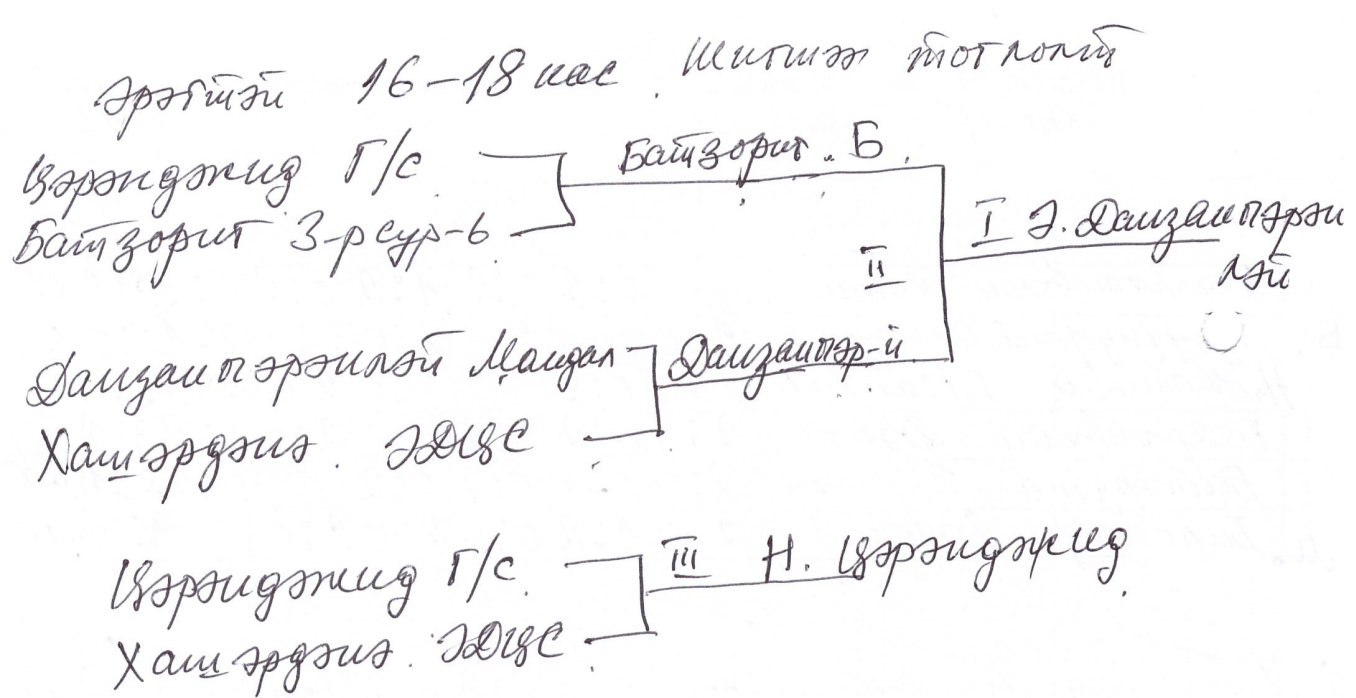 Эрэгтэй 16-18 нас. Шигшээ тоглолт
Цэрэнджид Г/С.
Батзориг 3-р сур-ь
Батзориг. Б.
II
I Э. Данзанпэрэн
лэй
Данзанпэрэнлэй Мандал
Данзанпэр-й
Хашэрдэнэ. ЭДЦС
Цэрэнджид Г/С.
Хашэрдэнэ. ЭДЦС
III Н. Цэрэнджид